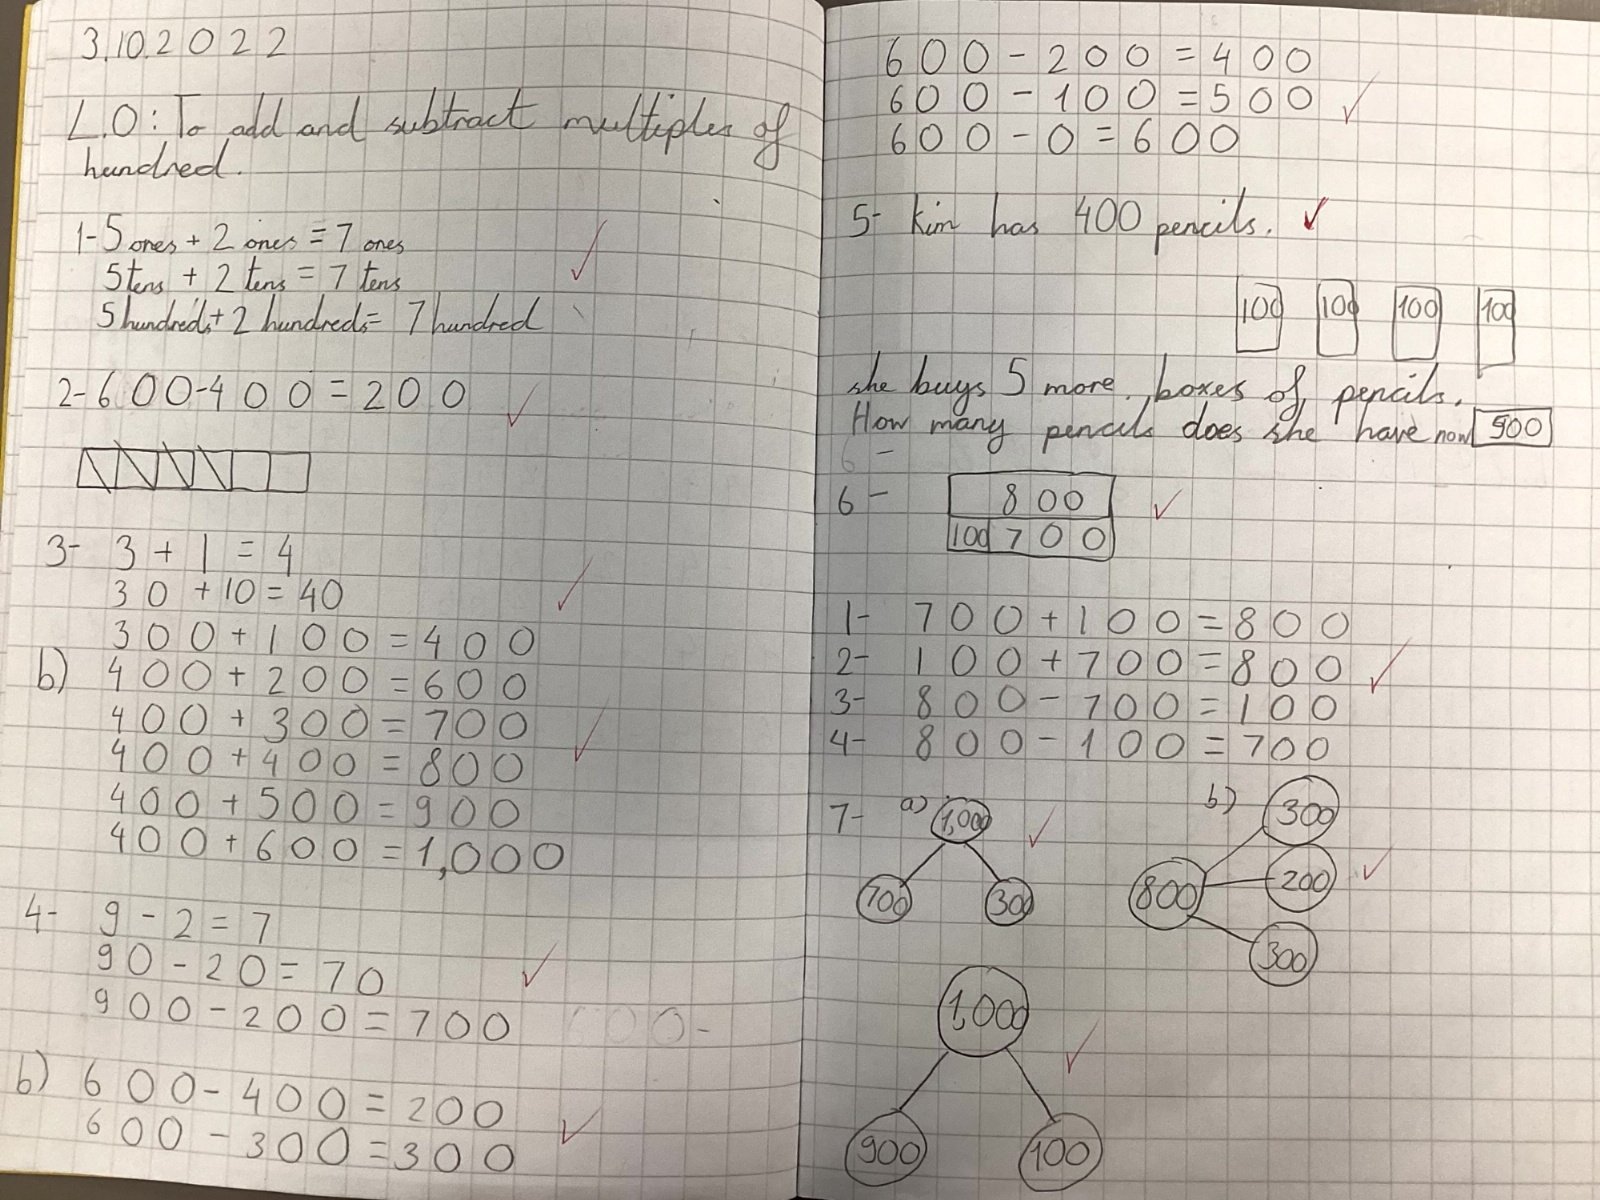 3.10.2022
L.O: To add and subtract multiples of
hundred.
1- 5 ones + 2 ones = 7 ones
5 tens + 2 tens = 7 tens
5 hundreds + 2 hundreds = 7 hundred
2- 600-400=200
3- 3+1=4
30+10=40
300+100=400
b) 400+200=600
400+300=700
400+400=800
400+500=900
400+600=1,000
4- 9-2=7
90-20=70
900-200=700 600-
b) 600-400=200
600-300=300
600-200=400
600-100=500
600-0=600
5- Kim has 400 pencils.
100 100 100 100
she buys 5 more boxes of pencils.
How many pencils does she have now 900
6-
6- 800
100 700
1- 700+100=800
2- 100+700=800
3- 800-700=100
4- 800-100=700
7- a) 1,000
700 300
b) 300
800 200
300
1,000
900 100